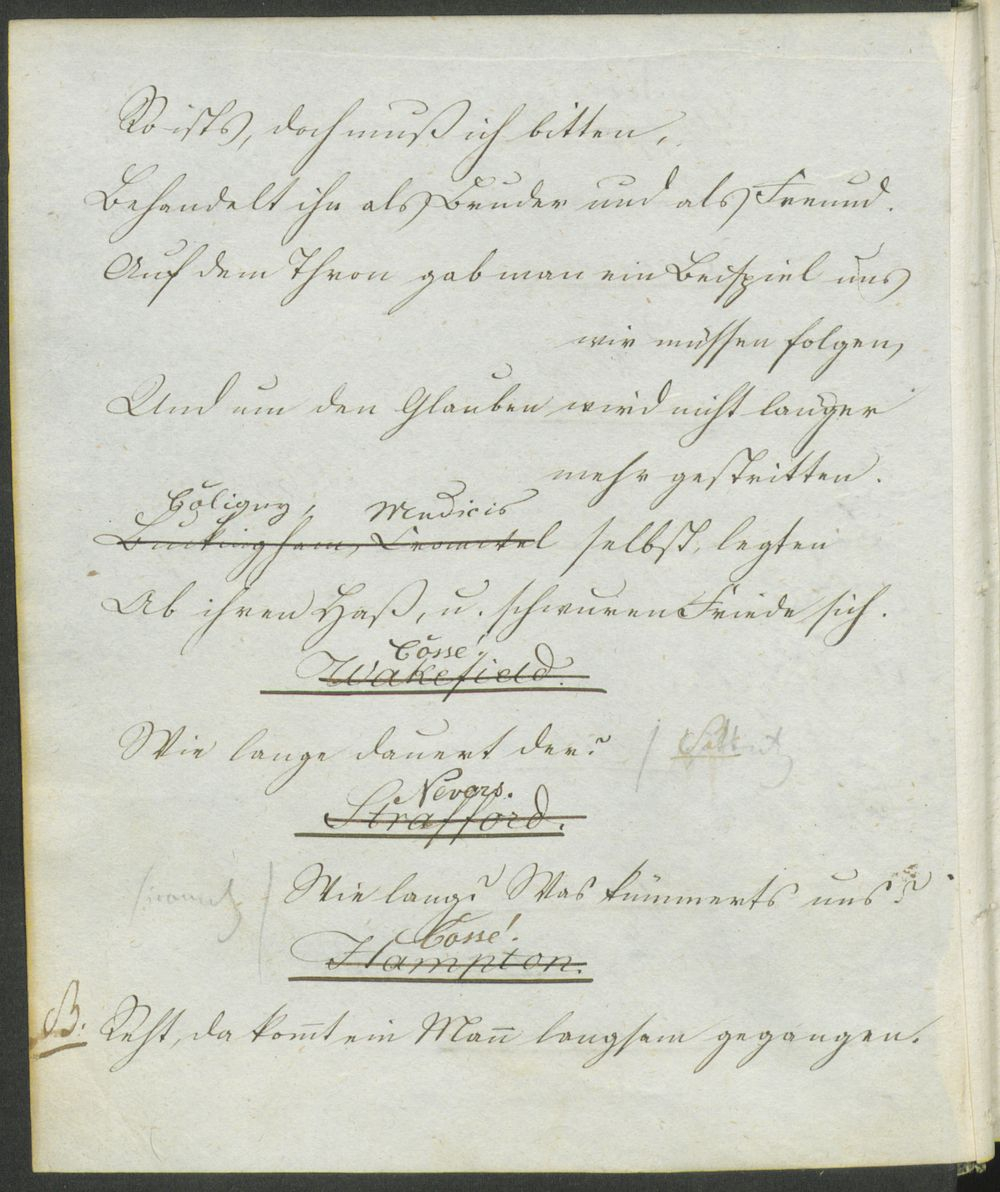 So ists, doch muß ich bitten,
Behandelt ihn als Bruder und als Freund.
Auf dem Thron gab man ein Beispiel uns
wir müssen folgen,
Und um den Glauben wird nicht länger
mehr gestritten.
Coligny, Medicis
Buckingham, Cromwel selbst, legten
Ab ihren Haß, u. schwuren Friede sich.
Cossé.
Wakefield.
Wie lange dauert der?
Nevers.
Strafford.
Wie lang? Was kümmerts uns?
Cossé.
Hampton.
B. Seht, da kom̅t ein Man̅ langsam gegangen.